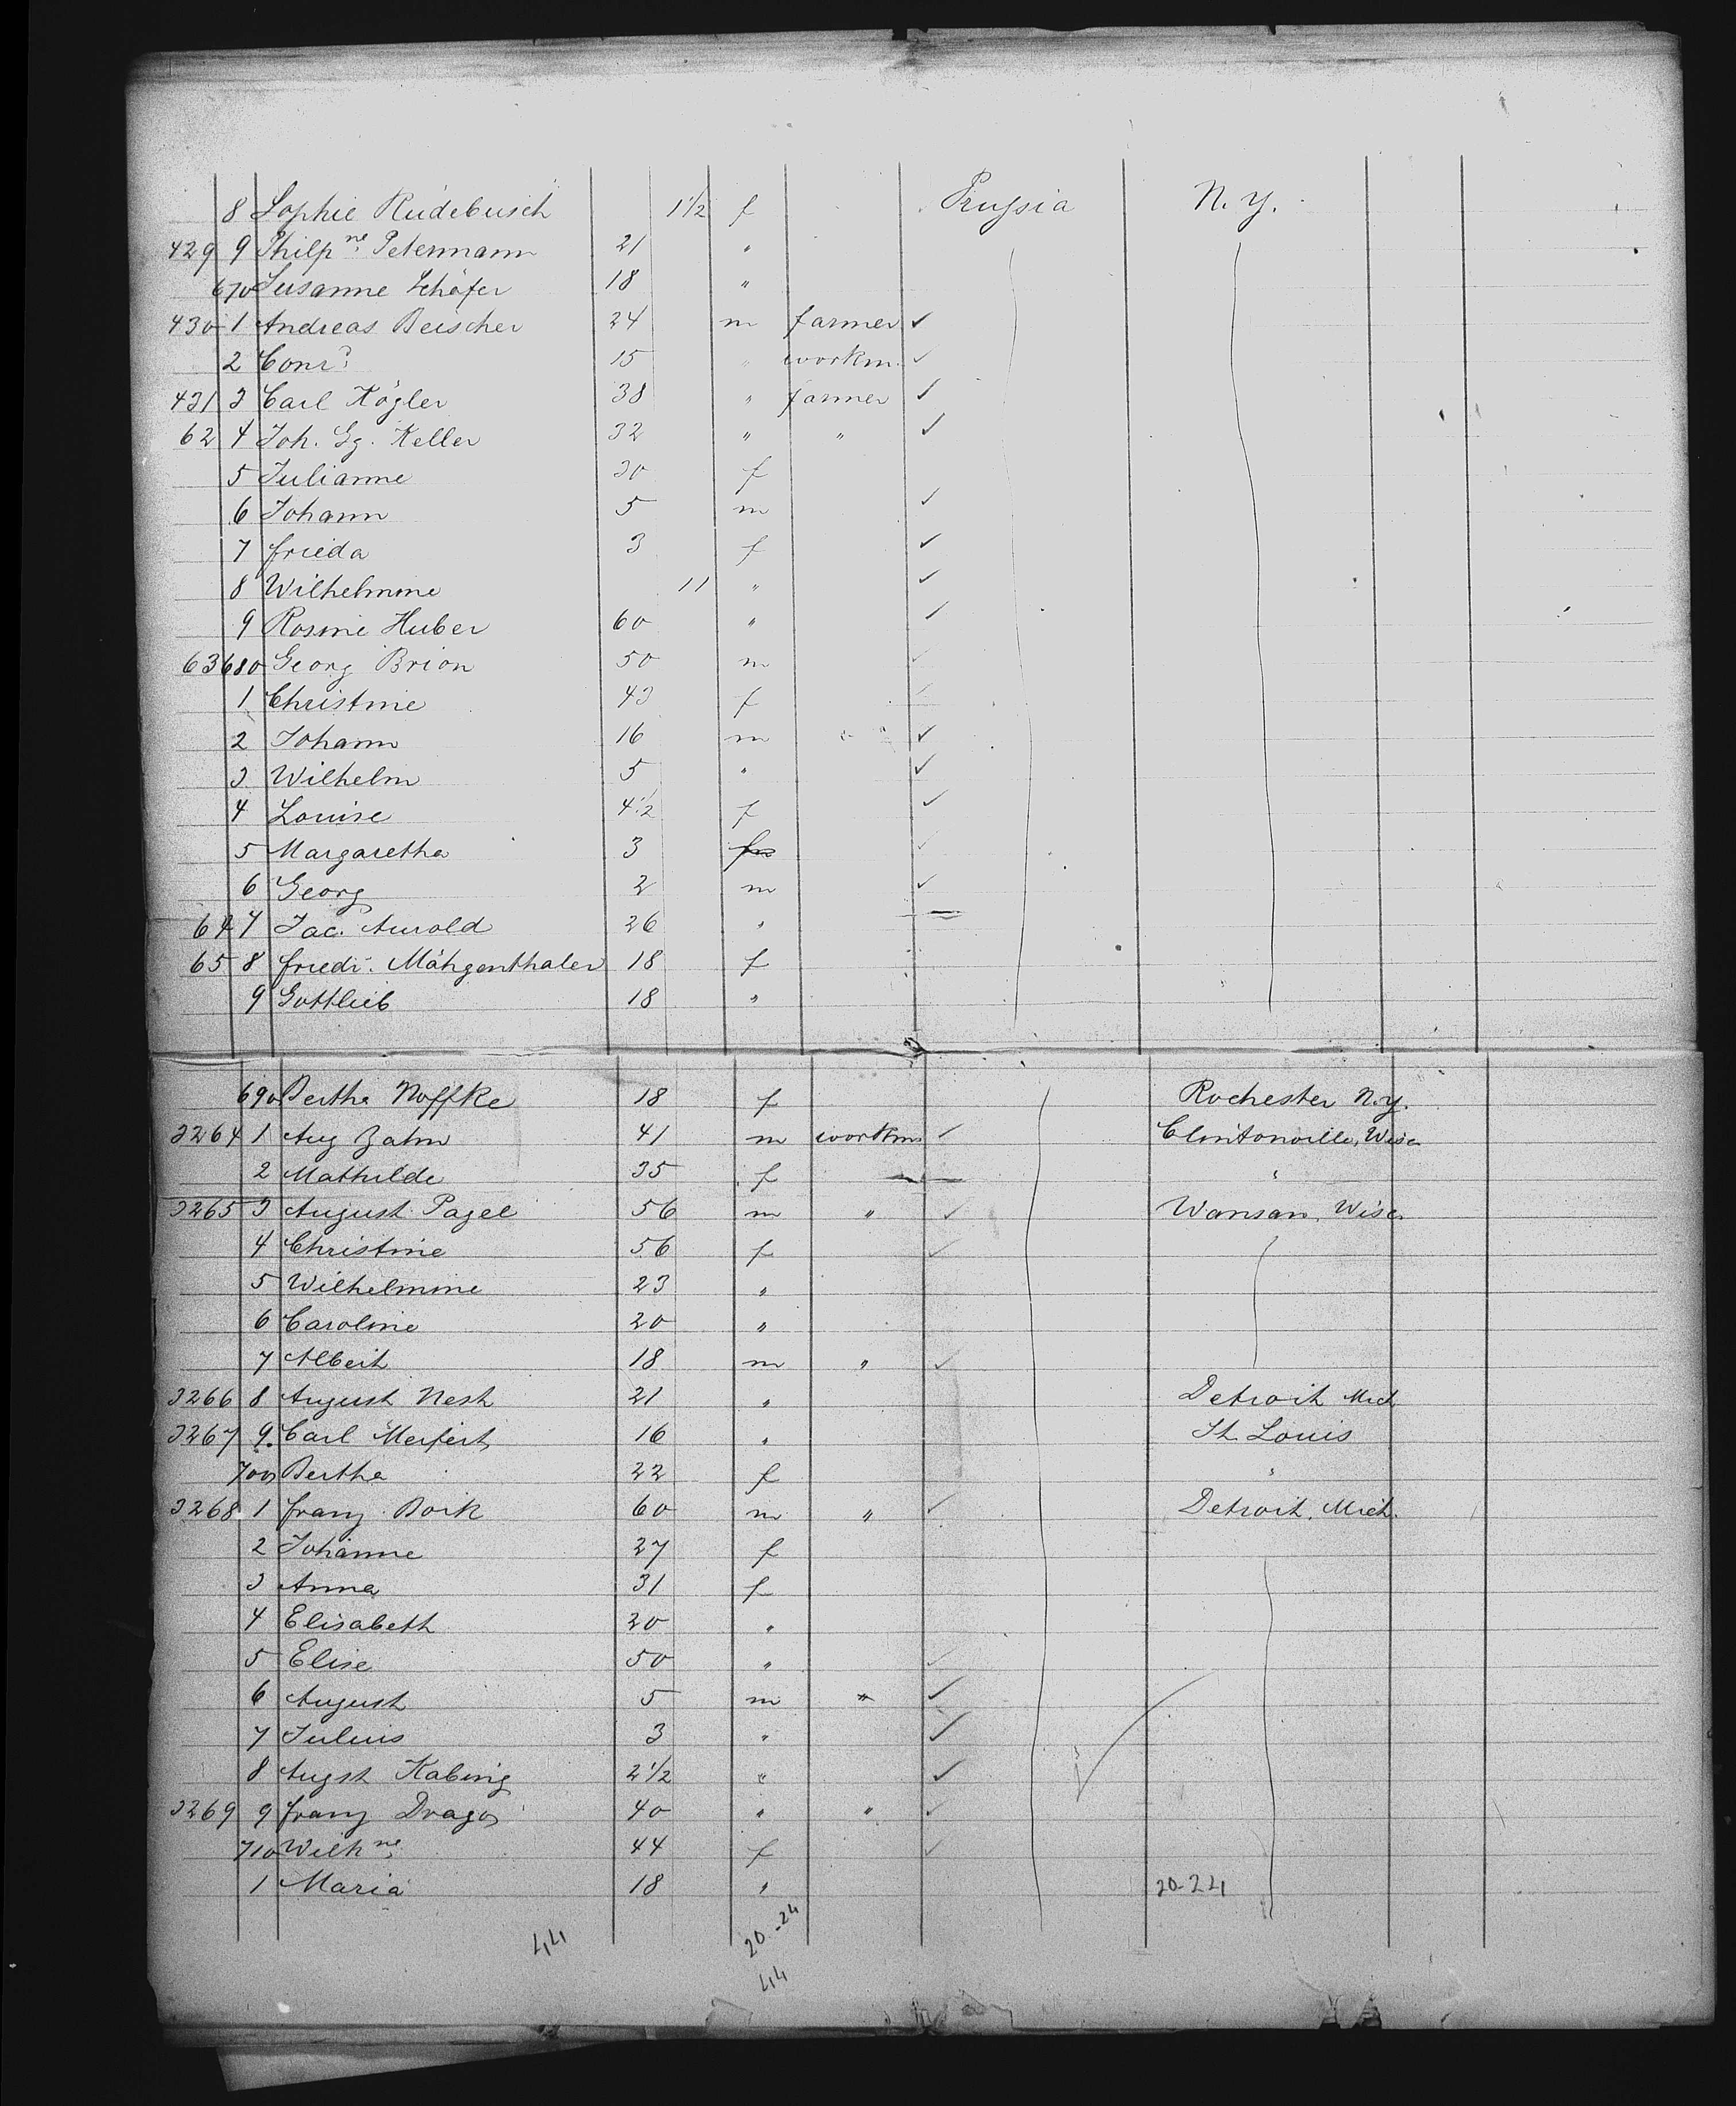 8 Sophie Rüdebusch 1 1/2 f Prussia N. Y.
429 9 Philpne Petermann 21 "
670 Susanne Schäfer 18 "
430 1 Andreas Beischer 24 m farmer ✓
2 Conrd 15 " workm. ✓
431 3 Carl Kögler 38 " farmer ✓
62 4 Joh. Gg. Keller 32 " " ✓
5 Julianne 30 f
6 Johann 5 m ✓
7 Frieda 3 f ✓
8 Wilhelmine 11 " ✓
9 Rosine Huber 60 " ✓
63 680 Georg Brion 50 m ✓
1 Christine 43 f ✓
2 Johann 16 m " ✓
3 Wilhelm 5 " ✓
4 Louise 4 1/2 f ✓
5 Margaretha 3 ✓
6 Georg 2 m ✓
64 7 Jac. Arnold 26 " —
65 8 Friedr. Mähgenthaler 18 f
9 Gottlieb 18 "
690 Bertha Noffke 18 f Rochester N.Y.
3264 1 Aug Zahn 41 m workm ✓ Clintonville, Wisc
2 Mathilde 35 f — "
3265 3 August Pagel 56 m " ✓ Wansan, Wisc
4 Christine 56 f ✓
5 Wilhelmine 23 "
6 Caroline 20 "
7 Albert 18 m " ✓
3266 8 August Nesh 21 " Detroit Mich
3267 9. Carl Meifert 16 " St. Louis
700 Bertha 22 f "
3268 1 Franz Boik 60 m " ✓ Detroit, Mich.
2 Johanne 27 f
3 Anna 31 f
4 Elisabeth 20 "
5 Elise 50 " ✓
6 August 5 m " ✓
7 Julius 3 " ✓
8 Augst Kabing 2 1/2 " ✓
3269 9 Franz Dragos 40 " " ✓
710 Wilhne 44 f ✓
1 Maria 18 " 20-24
44 20-24
44